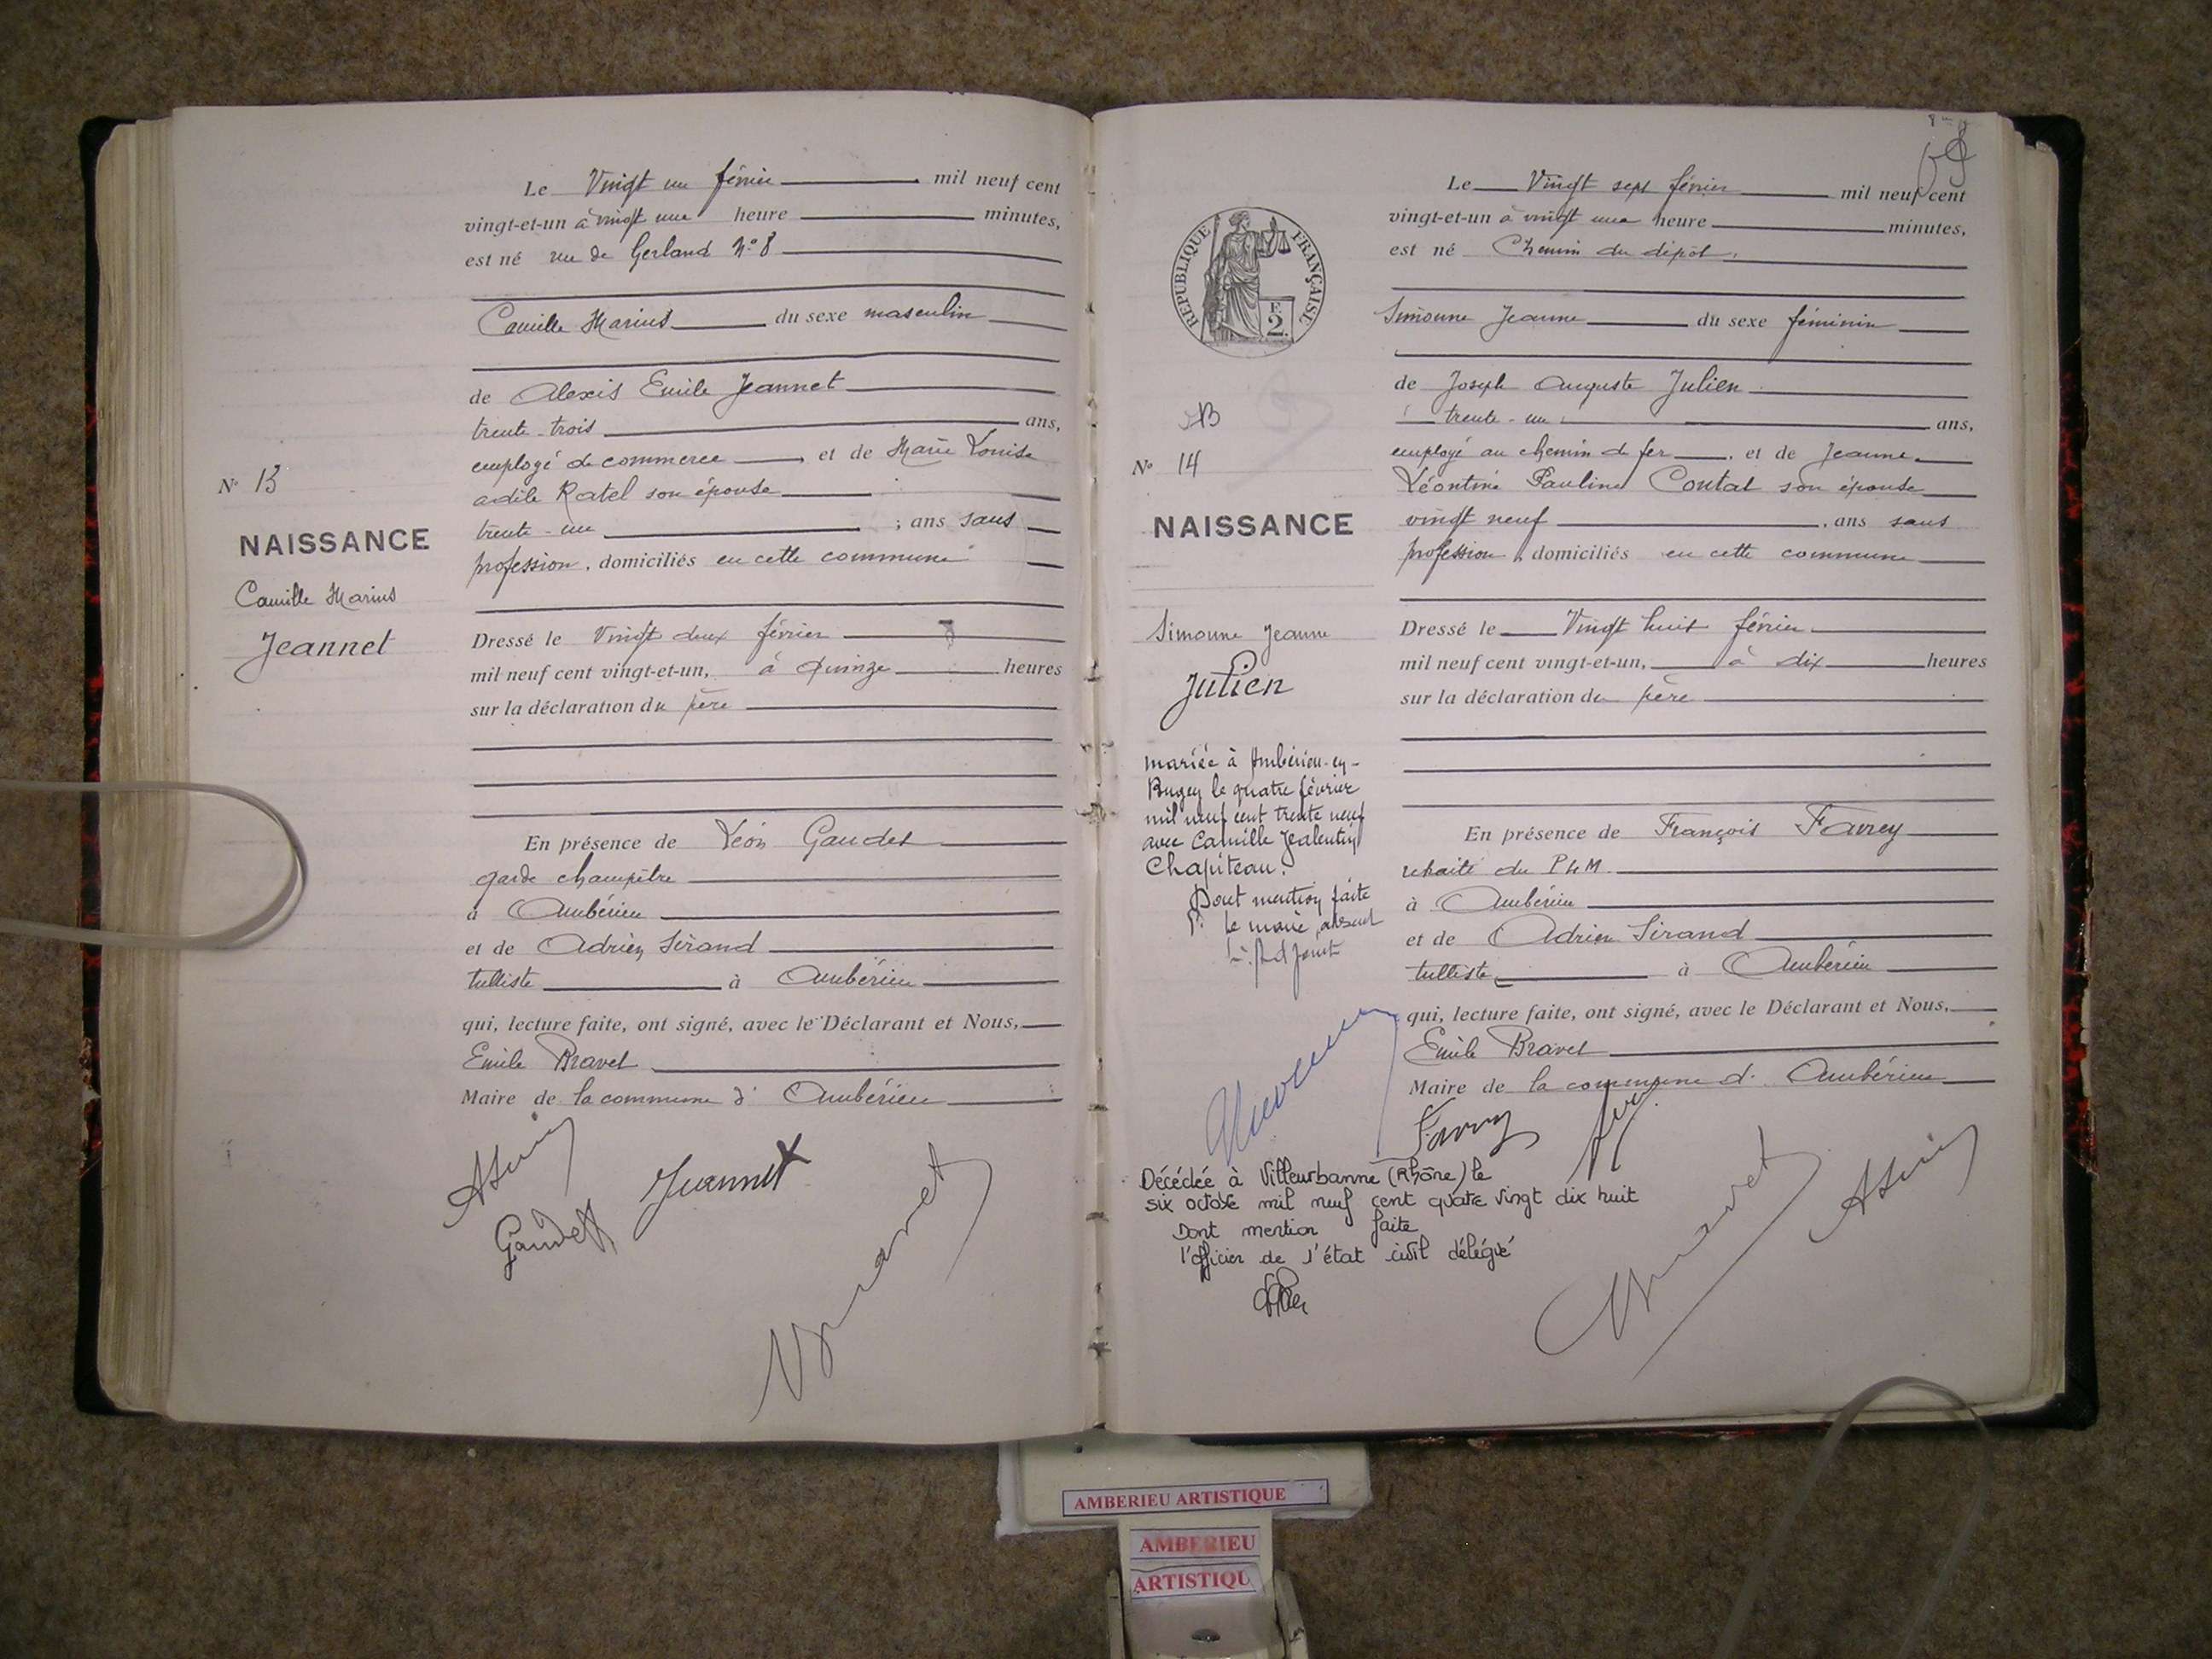 Le Vingt un février mil neuf cent
vingt-et-un à vingt une heure minutes,
est né rue de Gerland N° 8
Camille Marius du sexe masculin
de Alexis Emile Jeannet
trente-trois ans,
employé de commerce, et de Marie Louise
adèle Ratel son épouse
trente-un ; ans sans
profession, domiciliés en cette commune
N° 13
NAISSANCE
Camille Marius
Jeannet
Dressé le Vingt deux février
mil neuf cent vingt-et-un, à quinze heures
sur la déclaration du père
En présence de Léon Gaudet
garde champêtre
à Ambérieu
et de Adrien Sirand
tulliste à Ambérieu
qui, lecture faite, ont signé, avec le Déclarant et Nous,
Emile Bravet
Maire de la commune d' Ambérieu
Jeannet
Gaudet
Bravet
Le Vingt sept février mil neuf cent
vingt-et-un à vingt une heure minutes,
est né Chemin du dépôt.
RÉPUBLIQUE FRANÇAISE
F.
2.
Simonne Jeanne du sexe féminin
de Joseph Auguste Julien
trente-un ans,
employé au chemin de fer, et de Jeanne
Léontine Pauline Contat son épouse
vingt neuf, ans sans
profession, domiciliés en cette commune
N° 14
NAISSANCE
Simonne Jeanne
Julien
Dressé le Vingt huit février
mil neuf cent vingt-et-un, à dix heures
sur la déclaration du père
mariée à Ambérieu-en-
Bugey le quatre février
mil neuf cent trente neuf
avec Camille Valentin
Chapiteau.
Dont mention faite
Pr le maire absent
L'Adjoint
En présence de François Favrey
retraité du PLM
à Ambérieu
et de Adrien Sirand
tulliste à Ambérieu
qui, lecture faite, ont signé, avec le Déclarant et Nous,
Emile Bravet
Maire de la commune d' Ambérieu
Bravet
Décédée à Villeurbanne (Rhône) le
six octobre mil neuf cent quatre vingt dix huit
Dont mention faite
l'officier de l'état civil délégué
AMBERIEU ARTISTIQUE
AMBERIEU
ARTISTIQU